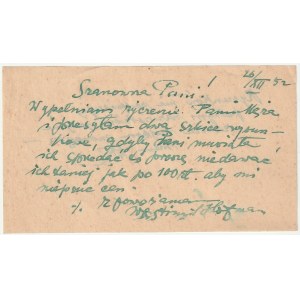 26/XII 52
Szanowna Pani!
Wypełniam życzenie Pani Męża
i przesyłam dwa szkice rysun-
kowe, gdyby Pani musiała
ich sprzedać to proszę niedawać
ich taniej jak po 100 zł. aby mi
niepsuć cen.
Z poważaniem
Wlastimil Hofman